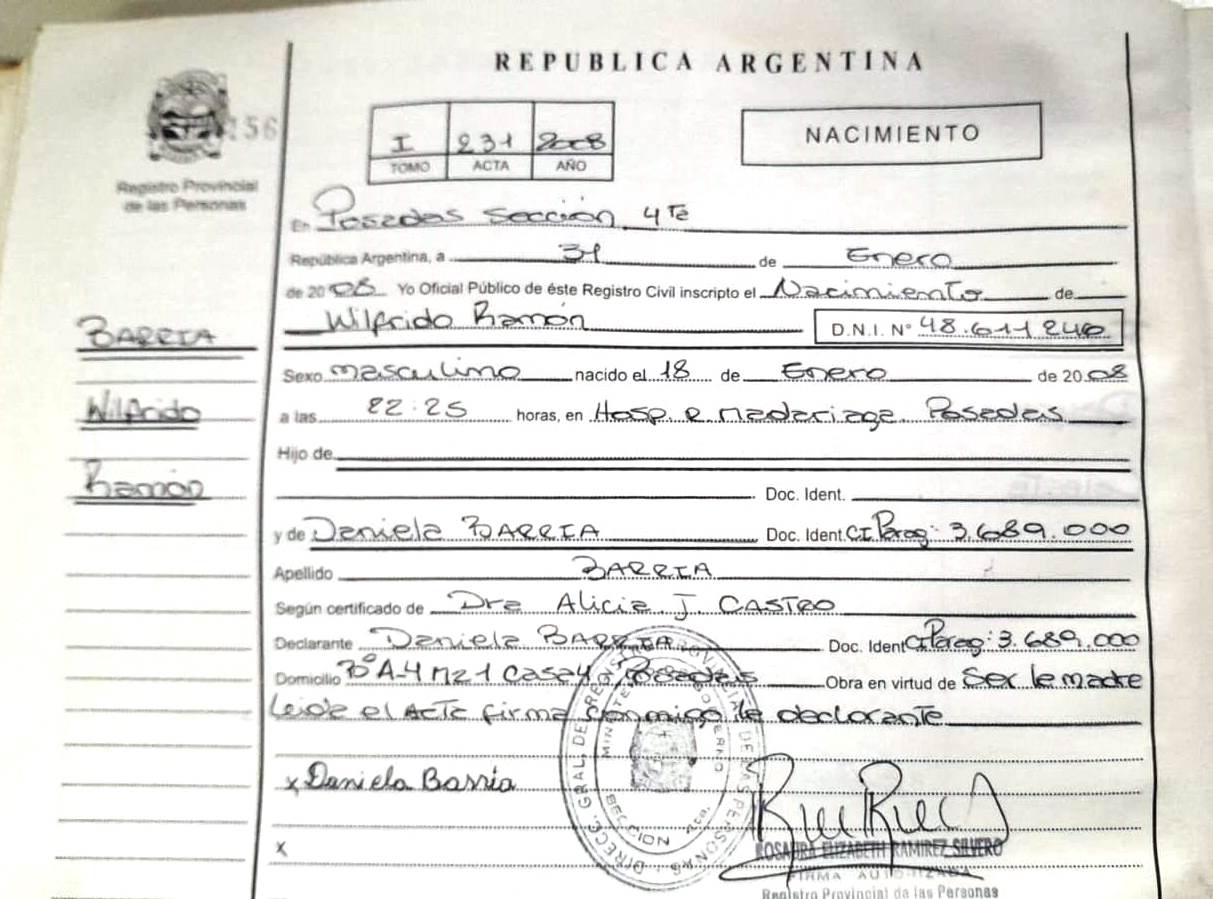 REPUBLICA ARGENTINA
156
Registro Provincial
de las Personas
I 231 2008
TOMO ACTA AÑO
NACIMIENTO
En Posadas Sección 4ta
República Argentina, a 31 de Enero
de 2008 Yo Oficial Público de éste Registro Civil inscripto el Nacimiento de
Wilfrido Ramón D.N.I. Nº 48.611.246
BARRIA
Wilfrido
Ramón
Sexo masculino nacido el 18 de Enero de 2008
a las 22:25 horas, en Hosp. R. Madariaga. Posadas
Hijo de
Doc. Ident.
y de Daniela BARRIA Doc. Ident. CI Parag: 3.689.000
Apellido BARRIA
Según certificado de Dra Alicia J. CASTRO
Declarante Daniela BARRIA Doc. Ident CI Parag: 3.689.000
Domicilio Bº A-4 Mz 1 Casa 4 Posadas Obra en virtud de Ser la madre
Leida el Acta firma conmigo la declarante
x Daniela Barria
x
DIRECC. GRAL. DE REGISTRO PROVINCIAL DE LAS PERSONAS
SECCION 4ta.
ROSAURA ELIZABETH RAMIREZ SILVERO
FIRMA AUTORIZADA
Registro Provincial de las Personas